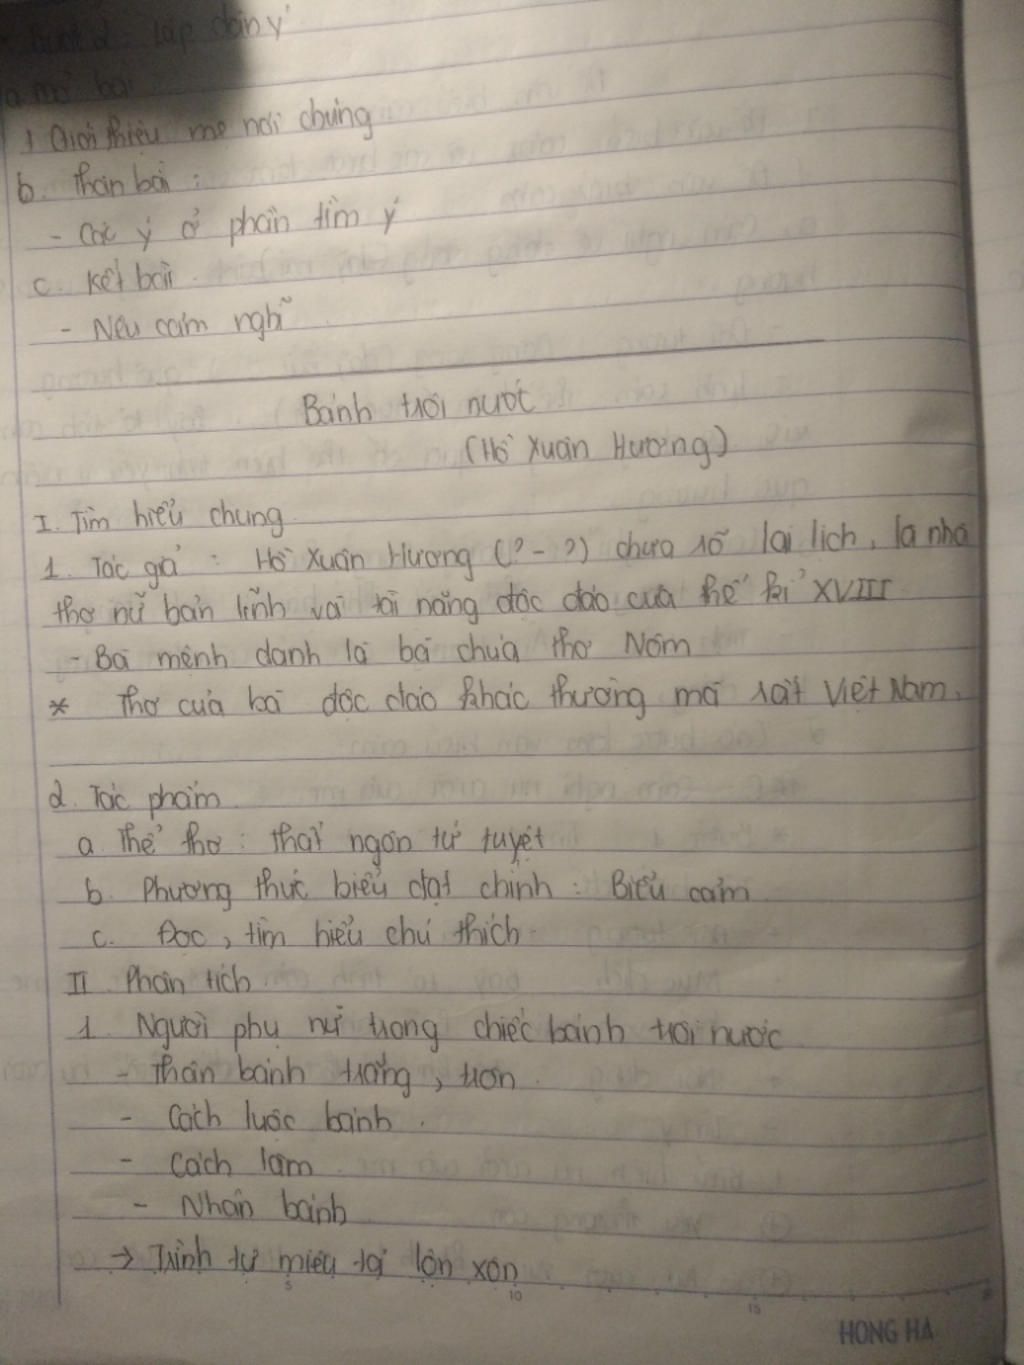 lập dàn ý
a. mở bài
1 Giới thiệu mẹ nói chung
b. Thân bài :
- Các ý ở phần tìm ý
c. Kết bài.
- Nêu cảm nghĩ
Bánh trôi nước
(Hồ Xuân Hương)
I. Tìm hiểu chung
1. Tác giả : Hồ Xuân Hương (? - ?) chưa rõ lai lịch, là nhà
thơ nữ bản lĩnh và tài năng độc đáo của thế kỉ XVIII
- Bà mệnh danh là bà chúa thơ Nôm
* Thơ của bà độc đáo khác thường mà rất Việt Nam.
2. Tác phẩm
a. Thể thơ : thất ngôn tứ tuyệt
b. Phương thức biểu đạt chính : Biểu cảm
c. Đọc, tìm hiểu chú thích
II. Phân tích
1. Người phụ nữ trong chiếc bánh trôi nước
- Thân bánh trắng, tròn.
- Cách luộc bánh.
- Cách làm.
- Nhân bánh
→ Trình tự miêu tả lộn xộn
5 10 15
HONG HA